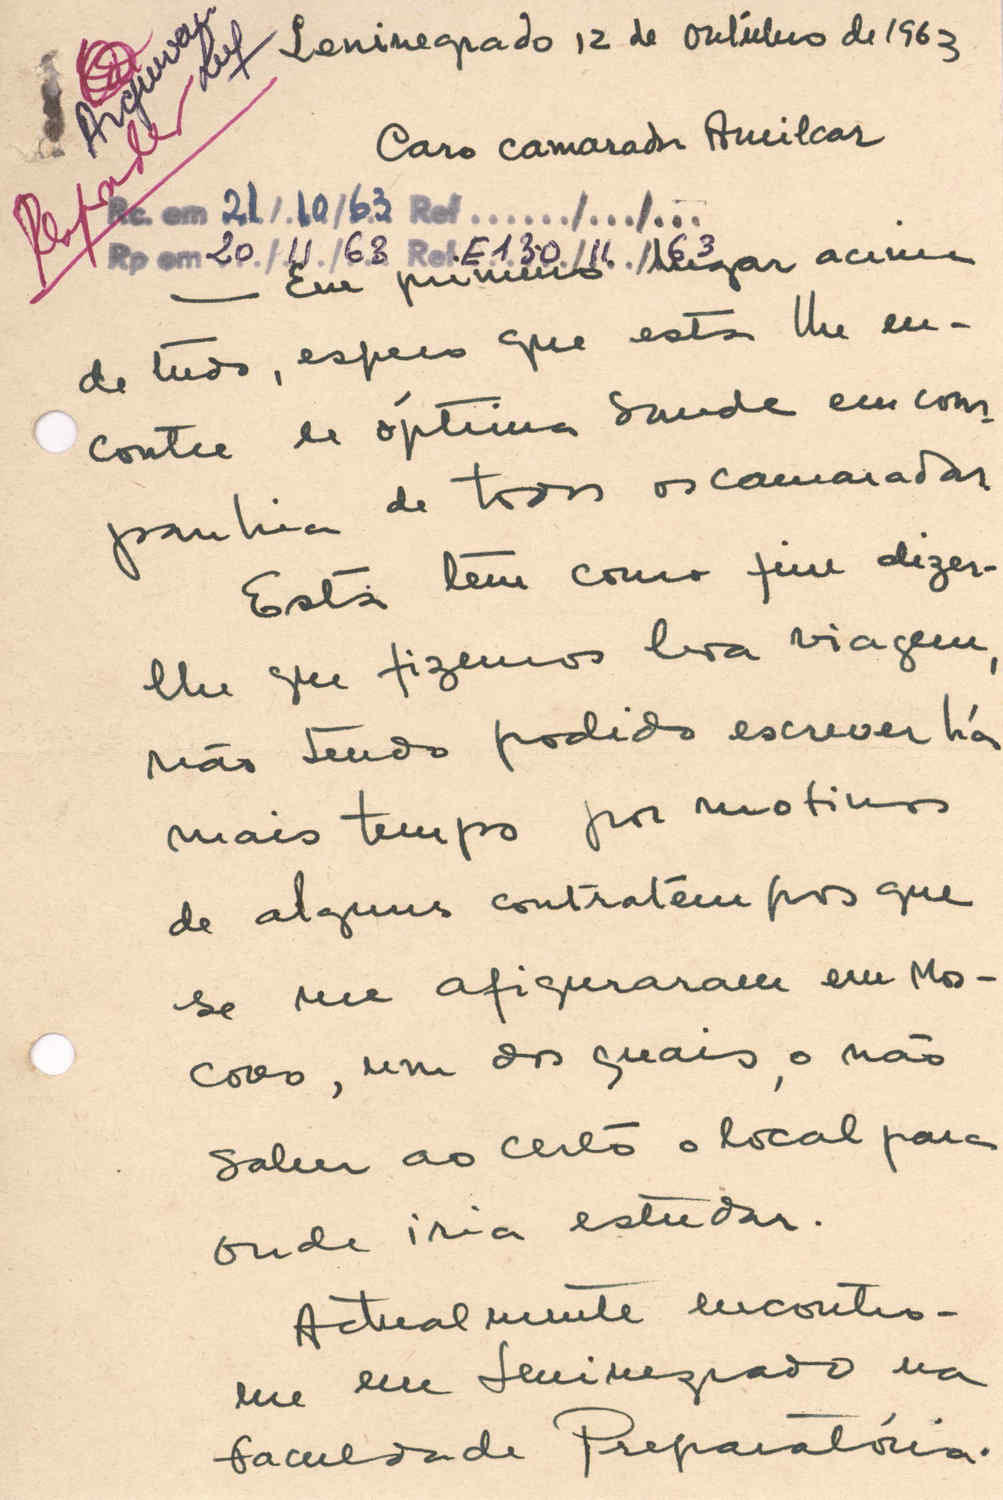 Arquivar
Luf
Responder
Leninegrado 12 de Outubro de 1963
Caro camarada Amilcar
Rc. em 21/10/63 Ref ....../.../...
Rp em 20/11/63 Ref. E130/11/63
— Em primeiro lugar acima
de tudo, espero que esta lhe en-
contre de óptima saude em com-
panhia de todos os camaradas
Está têm como fim dizer-
lhe que fizemos boa viagem,
não tendo podido escrever há
mais tempo por motivos
de alguns contratêmpos que
se me afiguraram em Mos-
covo, um dos quais, o não
saber ao certo o local para
onde iria estudar.
Actualmente encontro-
me em Leninegrado na
faculdade Preparatória.